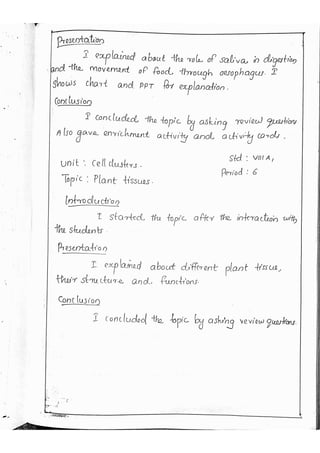 Presentation
I explained about the role of saliva in digestion
and the movement of food through oesophagus. I
shows chart and PPT for explanation.
Conclusion
I concluded the topic by asking review questions
Also gave enrichment activity and activity cards.
Std : VIII A,
Unit : Cell clusters.
Period : 6
Topic : Plant tissues.
Introduction
I started the topic after the interaction with
the students.
Presentation
I explained about different plant tissus,
their structure and functions.
Conclusion
I concluded the topic by asking review questions.